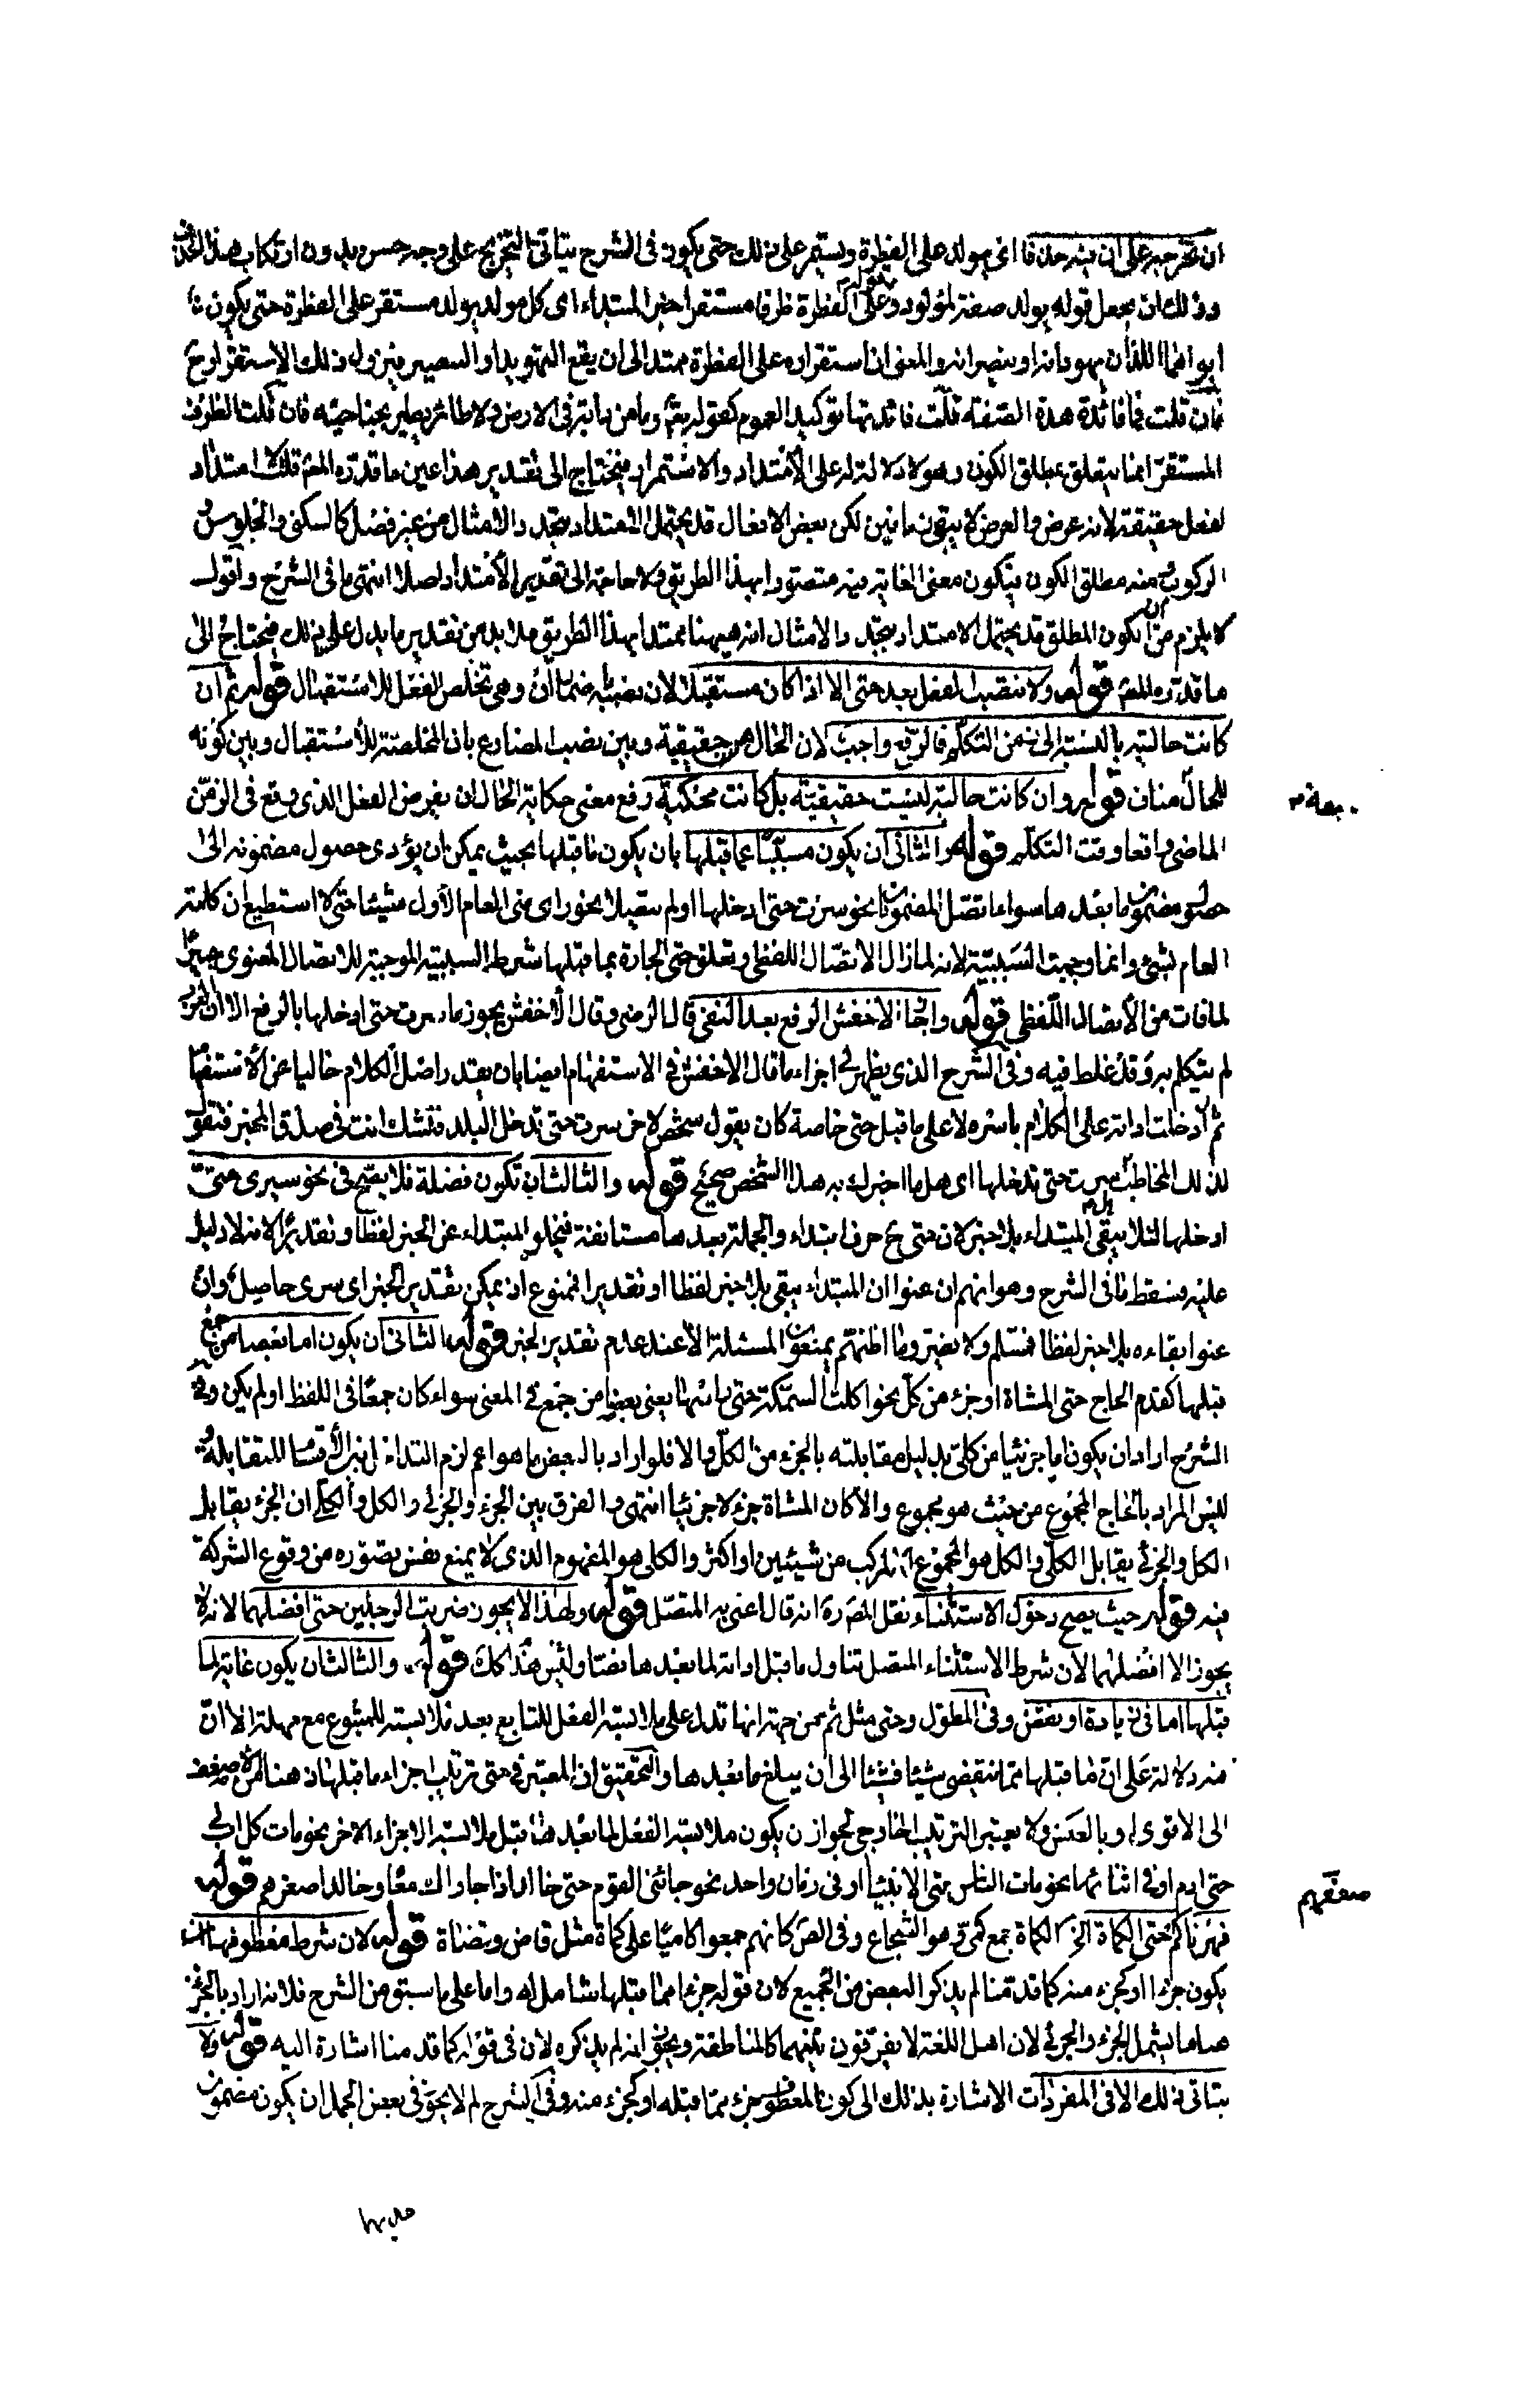 ان تخرجه على ان فيه حذفا اى يولد على الفطرة ويستمر على ذلك حتى يكون فى الشرح يتاتى التخريج على وجه حسن بدون ارتكاب هذا الحذف
وذلك ان يجعل قوله يولد صفة لمولود وقوله على الفطرة ظرفا مستقرا خبر المبتداء اى كل مولد يولد مستقر على الفطرة حتى يكون
ابواهما اللذان يهودانه او ينصرانه والمعنى ان استقراره على الفطرة ممتد الى ان يقع التهويد او التنصير فيزول ذلك الاستقرار ح
فان قلت فما فائدة هذه الصفة قلت فائدتها توكيد العموم كقوله تعالى وما من دابة فى الارض ولا طائر يطير بجناحيه فان قلت الظرف
المستقر انما يتعلق بمطلق الكون وهو لا دلالة له على الامتداد والاستمرار فيحتاج الى تقدير هذا عين ما قدره المص قلت لا امتداد
لفعل حقيقة لانه عرض والعرض لا يبقى زمانين لكن بعض الافعال قد يحتمل الامتداد بتجدد الامثال من غير فصل كالسكنى والجلوس و
الركوب ومنه مطلق الكون فيكون معنى الغاية فيه متصورا بهذا الطريق ولا حاجة الى تقدير الامتداد اصلا انتهى ما فى الشرح واقول
لا يلزم من ان يكون المطلق قد يحتمل الامتداد بتجدد الامثال انه ههنا ممتد بهذا الطريق فلا بد من تقدير ما يدل على ذلك فيحتاج الى
ما قدره المص قوله ولا ينتصب الفعل بعد حتى الا اذا كان مستقبلا لان نصبه بضمان ان وهى تخلص الفعل للاستقبال قوله ثم ان
كانت حاليته بالنسبة الى زمن التكلم فالرفع واجب لان الحال ح حقيقية وبين نصب المضارع بان المخلصة للاستقبال وبين كونه
للحال مناف قوله وان كانت حاليته ليست حقيقية بل كانت محكية رفع معنى حكاية الحال ان يفرض الفعل الذى وقع فى الزمن
الماضى واقعا وقت التكلم قوله والثانى ان يكون مسببا عما قبلها بان يكون ما قبلها بحيث يمكن ان يؤدى حصول مضمونه الى
حصول مضمون ما بعدها سواء اتصل المضمونان نحو سرت حتى ادخلها او لم يتصلا نحو راى منى العام الاول شيئا حتى لا استطيع ان كلمته
العام بشئ وانما وجبت السببية لانه لما زال الاتصال اللفظى وتعلق حتى الجارة بما قبلها شرط السببية الموجبة للاتصال المعنوى جبرا
لما فات من الاتصال اللفظى قوله واجاز الاخفش الرفع بعد النفى قال الرضى وقال الاخفش يجوز ما سرت حتى ادخلها بالرفع الا ان العرب
لم يتكلم به وقد غلط فيه وفى الشرح الذى يظهر لى اجراء ما قال الاخفش فى الاستفهام ايضا بان يقدر اصل الكلام خاليا عن الاستفهام
ثم ادخلت اداته على الكلام باسره لا على ما قبل حتى خاصة كان يقول شخص لاخر سرت حتى تدخل البلد فتشك انت فى صدق المخبر فتقول
لذلك المخاطب سرت حتى تدخلها اى هل ما اخبرك به هذا الشخص صحيح قوله والثالث ان تكون فضلة فلا يصح فى نحو سيرى حتى
ادخلها لئلا يبقى المبتداء بلا خبر لان حتى ح حرف ابتداء والجملة بعدها مستانفة فيخلو المبتداء عن الخبر لفظا وتقديرا لانه لا دليل
عليه فسقط ما فى الشرح وهو انهم ان عنوا ان المبتداء يبقى بلا خبر لفظا او تقديرا فممنوع اذ يمكن تقدير الخبر اى سرى حاصل وان
عنوا بقاءه بلا خبر لفظا فمسلم ولا يضير وما اظنهم يمنعون المسئلة الا عند عدم تقدير الخبر قوله الثانى ان يكون اما بعضا من جمع
قبلها كقدم الحاج حتى المشاة او جزء من كل نحو اكلت السمكة حتى راسها يعنى بعضا من جمع فى المعنى سواء كان جمعا فى اللفظ او لم يكن وفى
الشرح اراد ان يكون اما جزئيا من كلى بدليل مقابلته بالجزء من الكل والا فلو اراد بالبعض ما هو اعم لزم التداخل فى الاقسام المتقابلة و
ليس المراد بالحاج المجموع من حيث هو مجموع والا كان المشاة جزء لا جزئيا انتهى والفرق بين الجزء والجزئى والكل والكلى ان الجزء يقابل
الكل والجزئى يقابل الكلى والكل هو المجموع المركب من شيئين او اكثر والكلى هو المفهوم الذى لا يمنع نفس تصوره من وقوع الشركة
فيه قوله حيث يصح دخول الاستثناء نقل المص رة انه قال اعنى به المتصل قوله ولهذا لا يجوز ضربت الرجلين حتى افضلهما لانه لا
يجوز الا افضلهما لان شرط الاستثناء المتصل تناول ما قبل اداته لما بعدها نصا وليس هذا كك قوله والثالث ان يكون غاية لما
قبلها اما فى زيادة او نقص وفى المطول وحتى مثل ثم من جهة انها تدل على ملابسة الفعل للتابع بعد ملابسته للمتبوع مع مهلة الا ان
فيه دلالة على ان ما قبلها مما ينقضى شيئا فشيئا الى ان يبلغ ما بعدها والتحقيق ان المعتبر فى حتى ترتيب اجزاء ما قبلها ذهنا من الاضعف
الى الاقوى او بالعكس ولا يعتبر الترتيب الخارجى لجواز ان يكون ملابسة الفعل لما بعدها قبل ملابسته الاجزاء الاخر نحو مات كل اب لى
حتى ادم او فى اثنائها نحو مات الناس حتى الانبياء او فى زمان واحد نحو جائنى القوم حتى خالد اذا جاؤاك معا وخالد اصغرهم قوله
قهرناكم حتى الكماة الخ الكماة جمع كمى وهو الشجاع وفى الص كانهم جمعوا كاميا على كماة مثل قاض وقضاة قوله لان شرط معطوفها ان
يكون جزءا او كجزء منه كما قدمنا لم يذكر البعض من الجميع لان قوله جزءا مما قبلها شامل له واما على ما سبق من الشرح فلانه اراد بالجزء
هنا ما يشمل الجزء والجزئى لان اهل اللغة لا يفرقون بينهما كالمناطقة ويجوز انه لم يذكره لان فى قوله كما قدمنا اشارة اليه قوله ولا
يتاتى ذلك الا فى المفردات الاشارة بذلك الى كون المعطوف جزء مما قبله او كجزء منه وفى الشرح لم لا يجوز فى بعض الجمل ان يكون مضمون